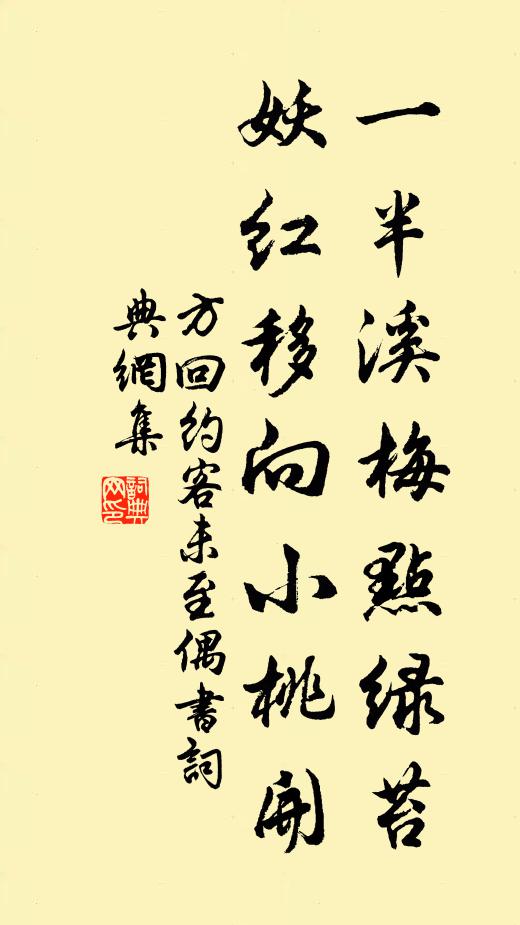 一半溪梅點緑苔
妖紅移向小桃開
方回約客未至偶書詞
典網集
詞典
网印